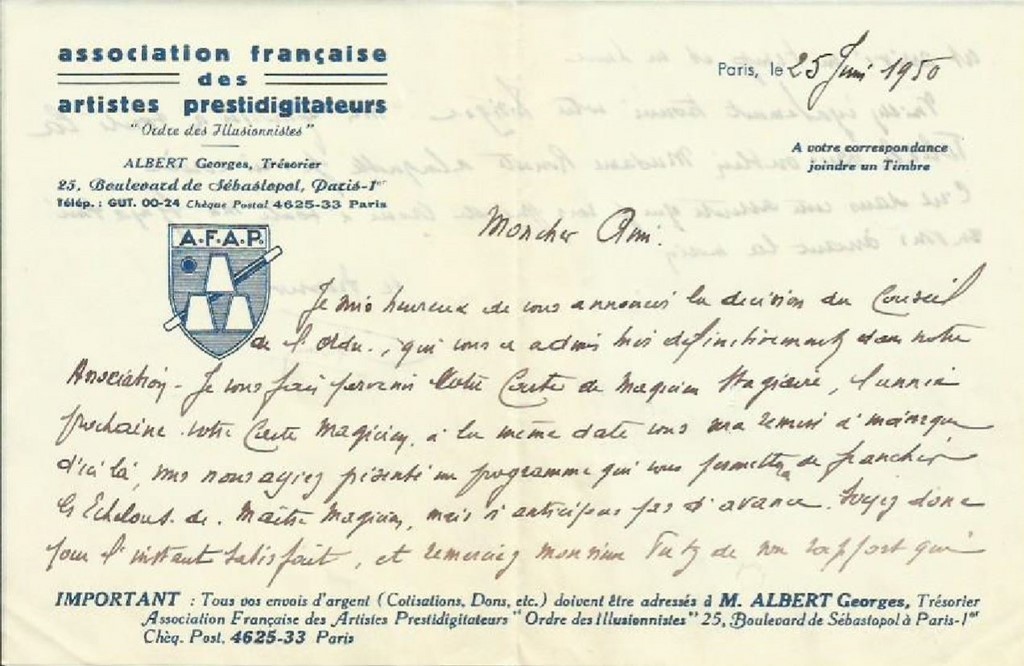 association française
des
artistes prestidigitateurs
"Ordre des Illusionnistes"
ALBERT Georges, Trésorier
25, Boulevard de Sébastopol, Paris-1er
Télép. : GUT. 00-24 Chèque Postal 4625-33 Paris
Paris, le 25 Juin 1950
A votre correspondance
joindre un Timbre
A.F.A.P.
Mon cher Ami.
Je suis heureux de vous annoncer la decision du Conseil
de l'Ordre, qui vous a admis definitivement dans notre
Association - Je vous fais parvenir Votre Carte de Magicien Stagiaire, l'année
prochaine votre Carte Magicien, à la même date vous sera remise à moins que
d'ici là, vous nous ayiez présenté un programme qui vous permettra de franchir
les Echelons de Maître Magicien, mais n'anticipons pas d'avance. Soyez donc
pour l'instant satisfait, et remerciez monsieur de son rapport qui
IMPORTANT : Tous vos envois d'argent (Cotisations, Dons, etc.) doivent être adressés à M. ALBERT Georges, Trésorier
Association Française des Artistes Prestidigitateurs "Ordre des Illusionnistes" 25, Boulevard de Sébastopol à Paris-1er
Chèq. Post. 4625-33 Paris